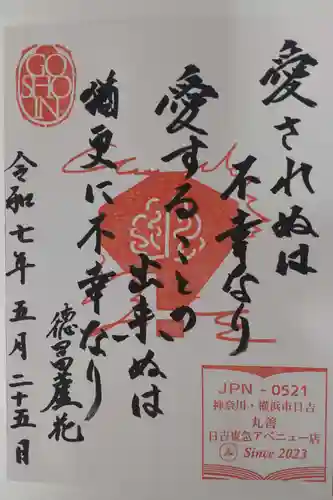 愛されぬは
不幸なり
愛することの
出来ぬは
猶更に不幸なり
徳冨蘆花
令和七年 五月 二十五日
GO
SHO
IN
JPN - 0521
神奈川・横浜市日吉
丸善
日吉東急アベニュー店
Since 2023